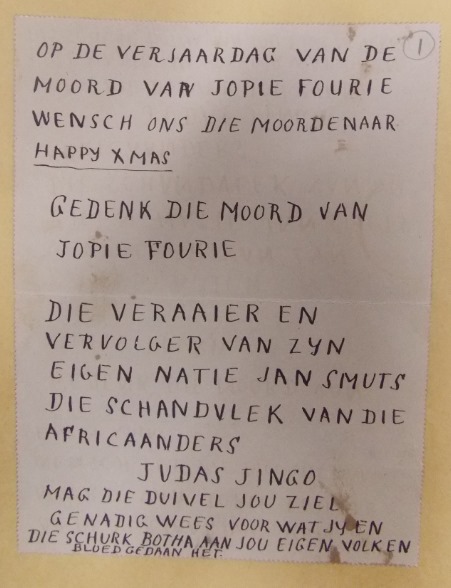 1
OP DE VERJAARDAG VAN DE
MOORD VAN JOPIE FOURIE
WENSCH ONS DIE MOORDENAAR
HAPPY XMAS
GEDENK DIE MOORD VAN
JOPIE FOURIE
DIE VERAAIER EN
VERVOLGER VAN ZYN
EIGEN NATIE JAN SMUTS
DIE SCHANDVLEK VAN DIE
AFRICAANDERS
JUDAS JINGO
MAG DIE DUIVEL JOU ZIEL
GENADIG WEES VOOR WAT JY EN
DIE SCHURK BOTHA AAN JOU EIGEN VOLK EN
BLUED GEDAAN HET.